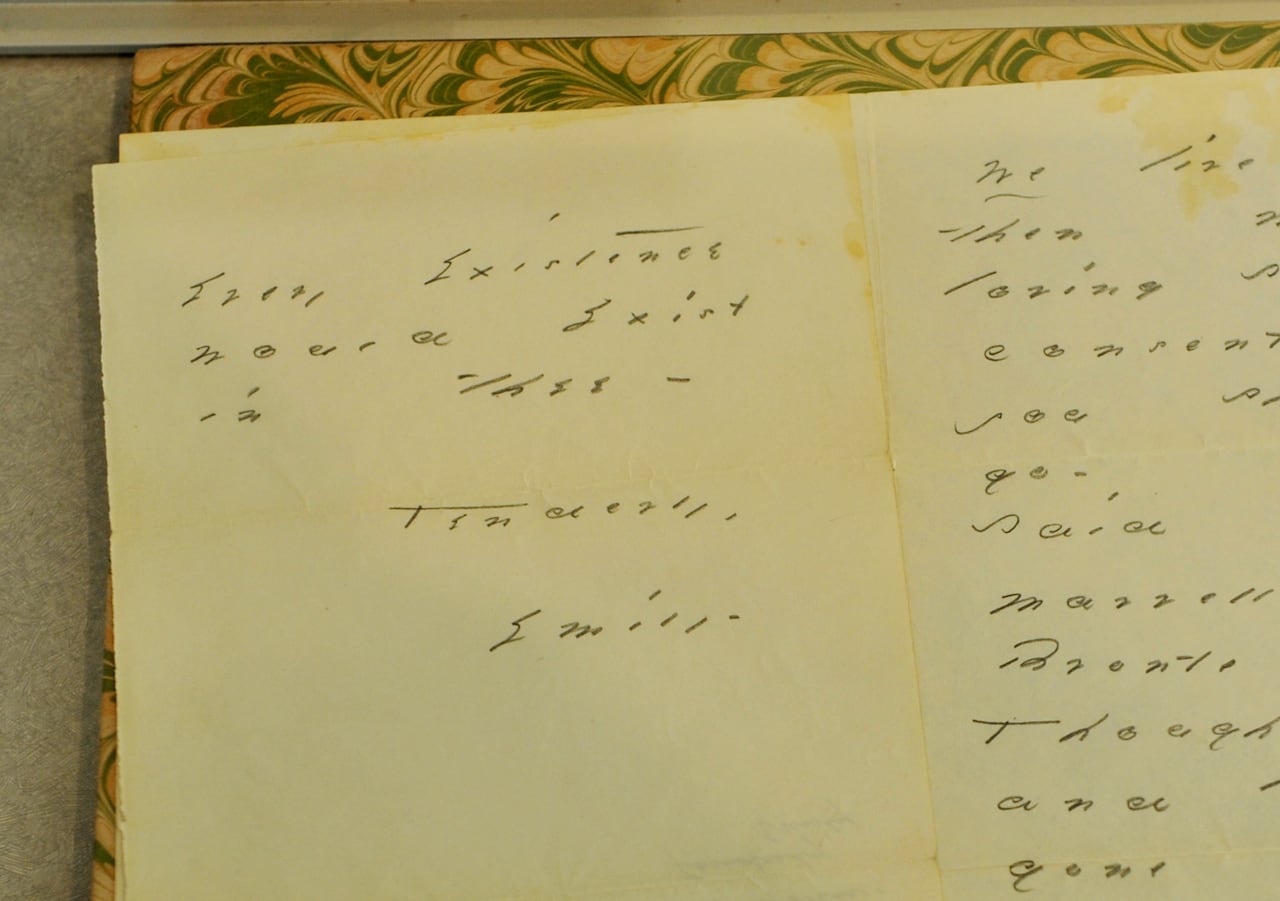 Every Existence
would Exist
in Thee -
Tenderly,
Emily -
We live
Then
loving
consent
go -
Said
marvell
Bronte
Though
and
gone